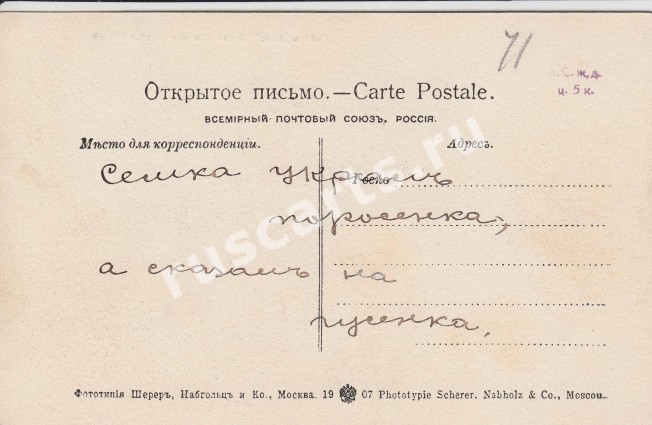 71
С. ж. д.
ц. 5 к.
Открытое письмо.—Carte Postale.
ВСЕМІРНЫЙ ПОЧТОВЫЙ СОЮЗЪ, РОССІЯ.
Мѣсто для корреспонденціи.
Адресъ.
Семка укралъ
поросенка,
а сказалъ на
гусенка,
Фототипія Шереръ, Набгольцъ и Ко., Москва. 19 07 Phototypie Scherer, Nabholz & Co., Moscou.
ruscarts.ru